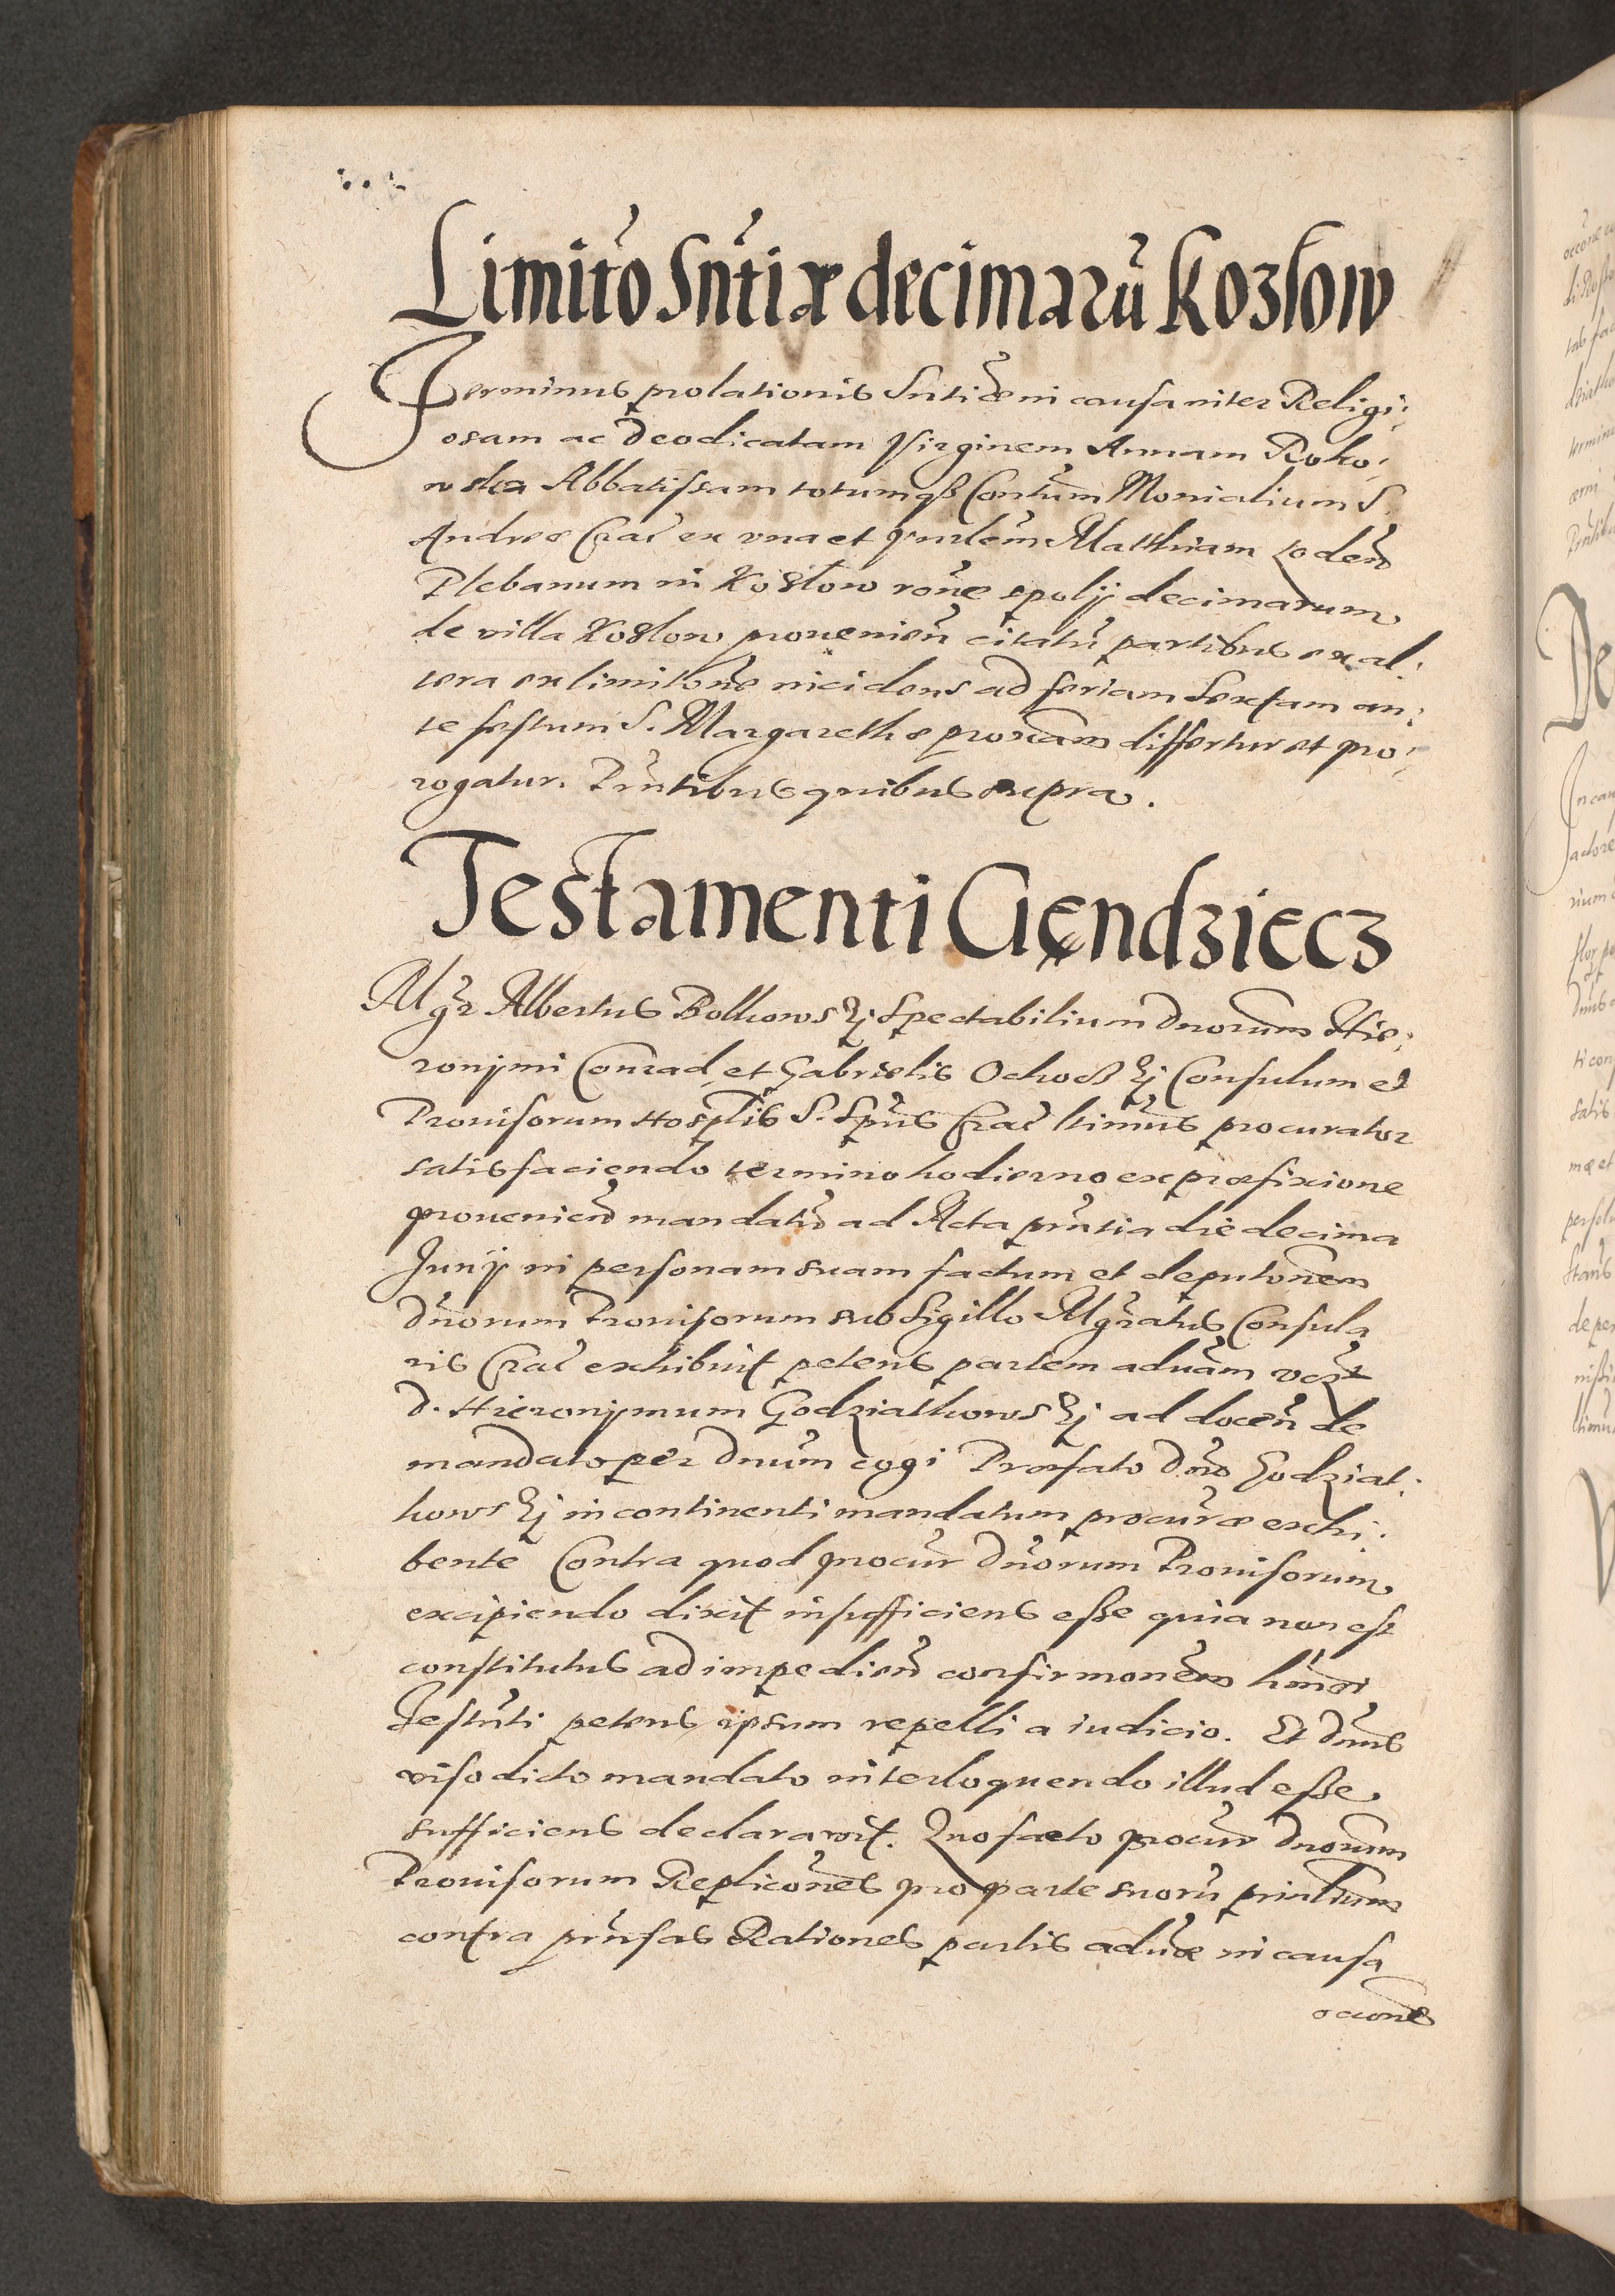 Limito Sntiæ decimarũ Kozłow
Terminus prolationis Sntiæ in causa inter Religi:
osam ac Deodicatam Virginem Annam Roko:
wska Abbatissam totumqȝ Contum Monialium S.
Andreæ Crac ex vna et Matthiam
Plebanum in Kozłow rone spolij decimarum
de villa Kozlow prouenien citatũ partibus ex al:
tera ex limitone incidens ad feriam Sextam an:
te festum S. Margarethæ proxam differtur et pro:
rogatur. Pntibus quibus supra.
Testamenti Gęndziecz
Mgr Albertus Bolkowsky Spectabilium Dnorum Hie:
ronijmi Conrad et Gabrielis Ochoczky Consulum et
Prouisorum Hosplis S. Spus Crac ltimus procurator
satisfaciendo termino hodierno ex præfixione
prouenien mandatũ ad Acta pntia die decima
Junij in personam suam factum et deputonem
Dnorum Prouisorum sub Sigillo Mgratus Consula
ris Crac exhibuit petens partem aduam
D. Hieronijmum Godziathowsky ad docen de
mandato per Dnum cogi Præfato Dno Godziat:
howsky in continenti mandatum procuræ exhi:
bente Contra quod procur Dnorum Prouisorum
excipiendo dixit insufficiens esse quia non est
constitutus ad impedien confirmonem hmoi
Testnti petens ipsum repelli a iudicio. Et Dnus
viso dicto mandato interloquendo illud esse
sufficiens declarauit. Quo facto procur Dnorum
Prouisorum Replicones pro parte suorũ prinlium
contra prinsas Rationes partis aduæ in causa
occone